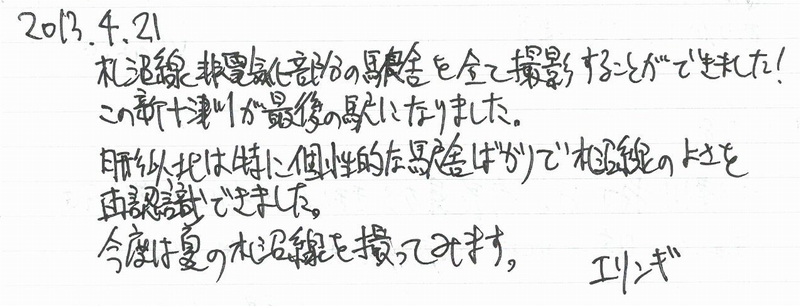 2013.4.21
札沼線非電気化部分の駅舎を全て撮影することができました!
この新十津川が最後の駅になりました。
月形以北は特に個性的な駅舎ばかりで札沼線のよさを
再認識できました。
今度は夏の札沼線を撮ってみます。
エリンギ